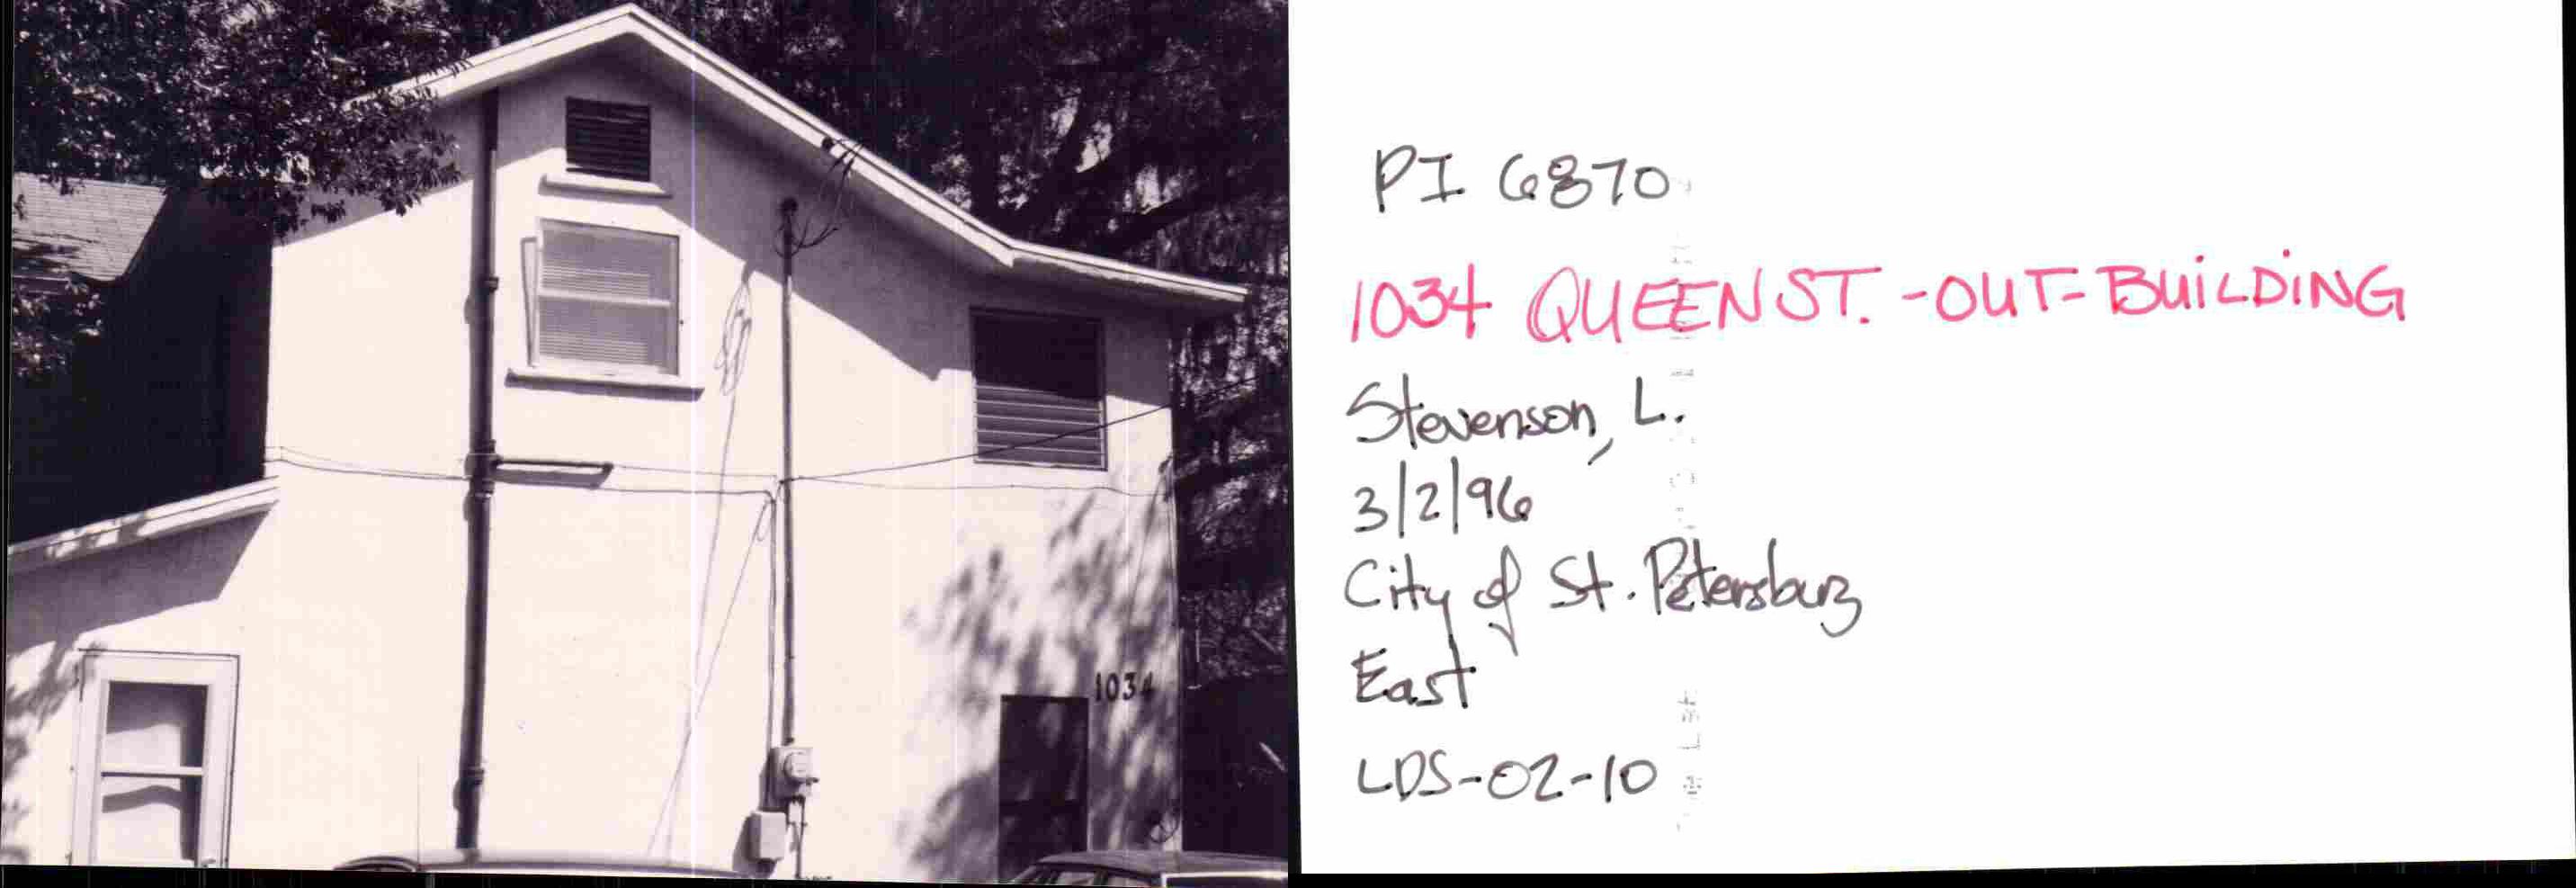 1034
PI 6870
1034 QUEEN ST. - OUT-BUILDING
Stevenson, L.
3/2/96
City of St. Petersburg
East
LDS-02-10